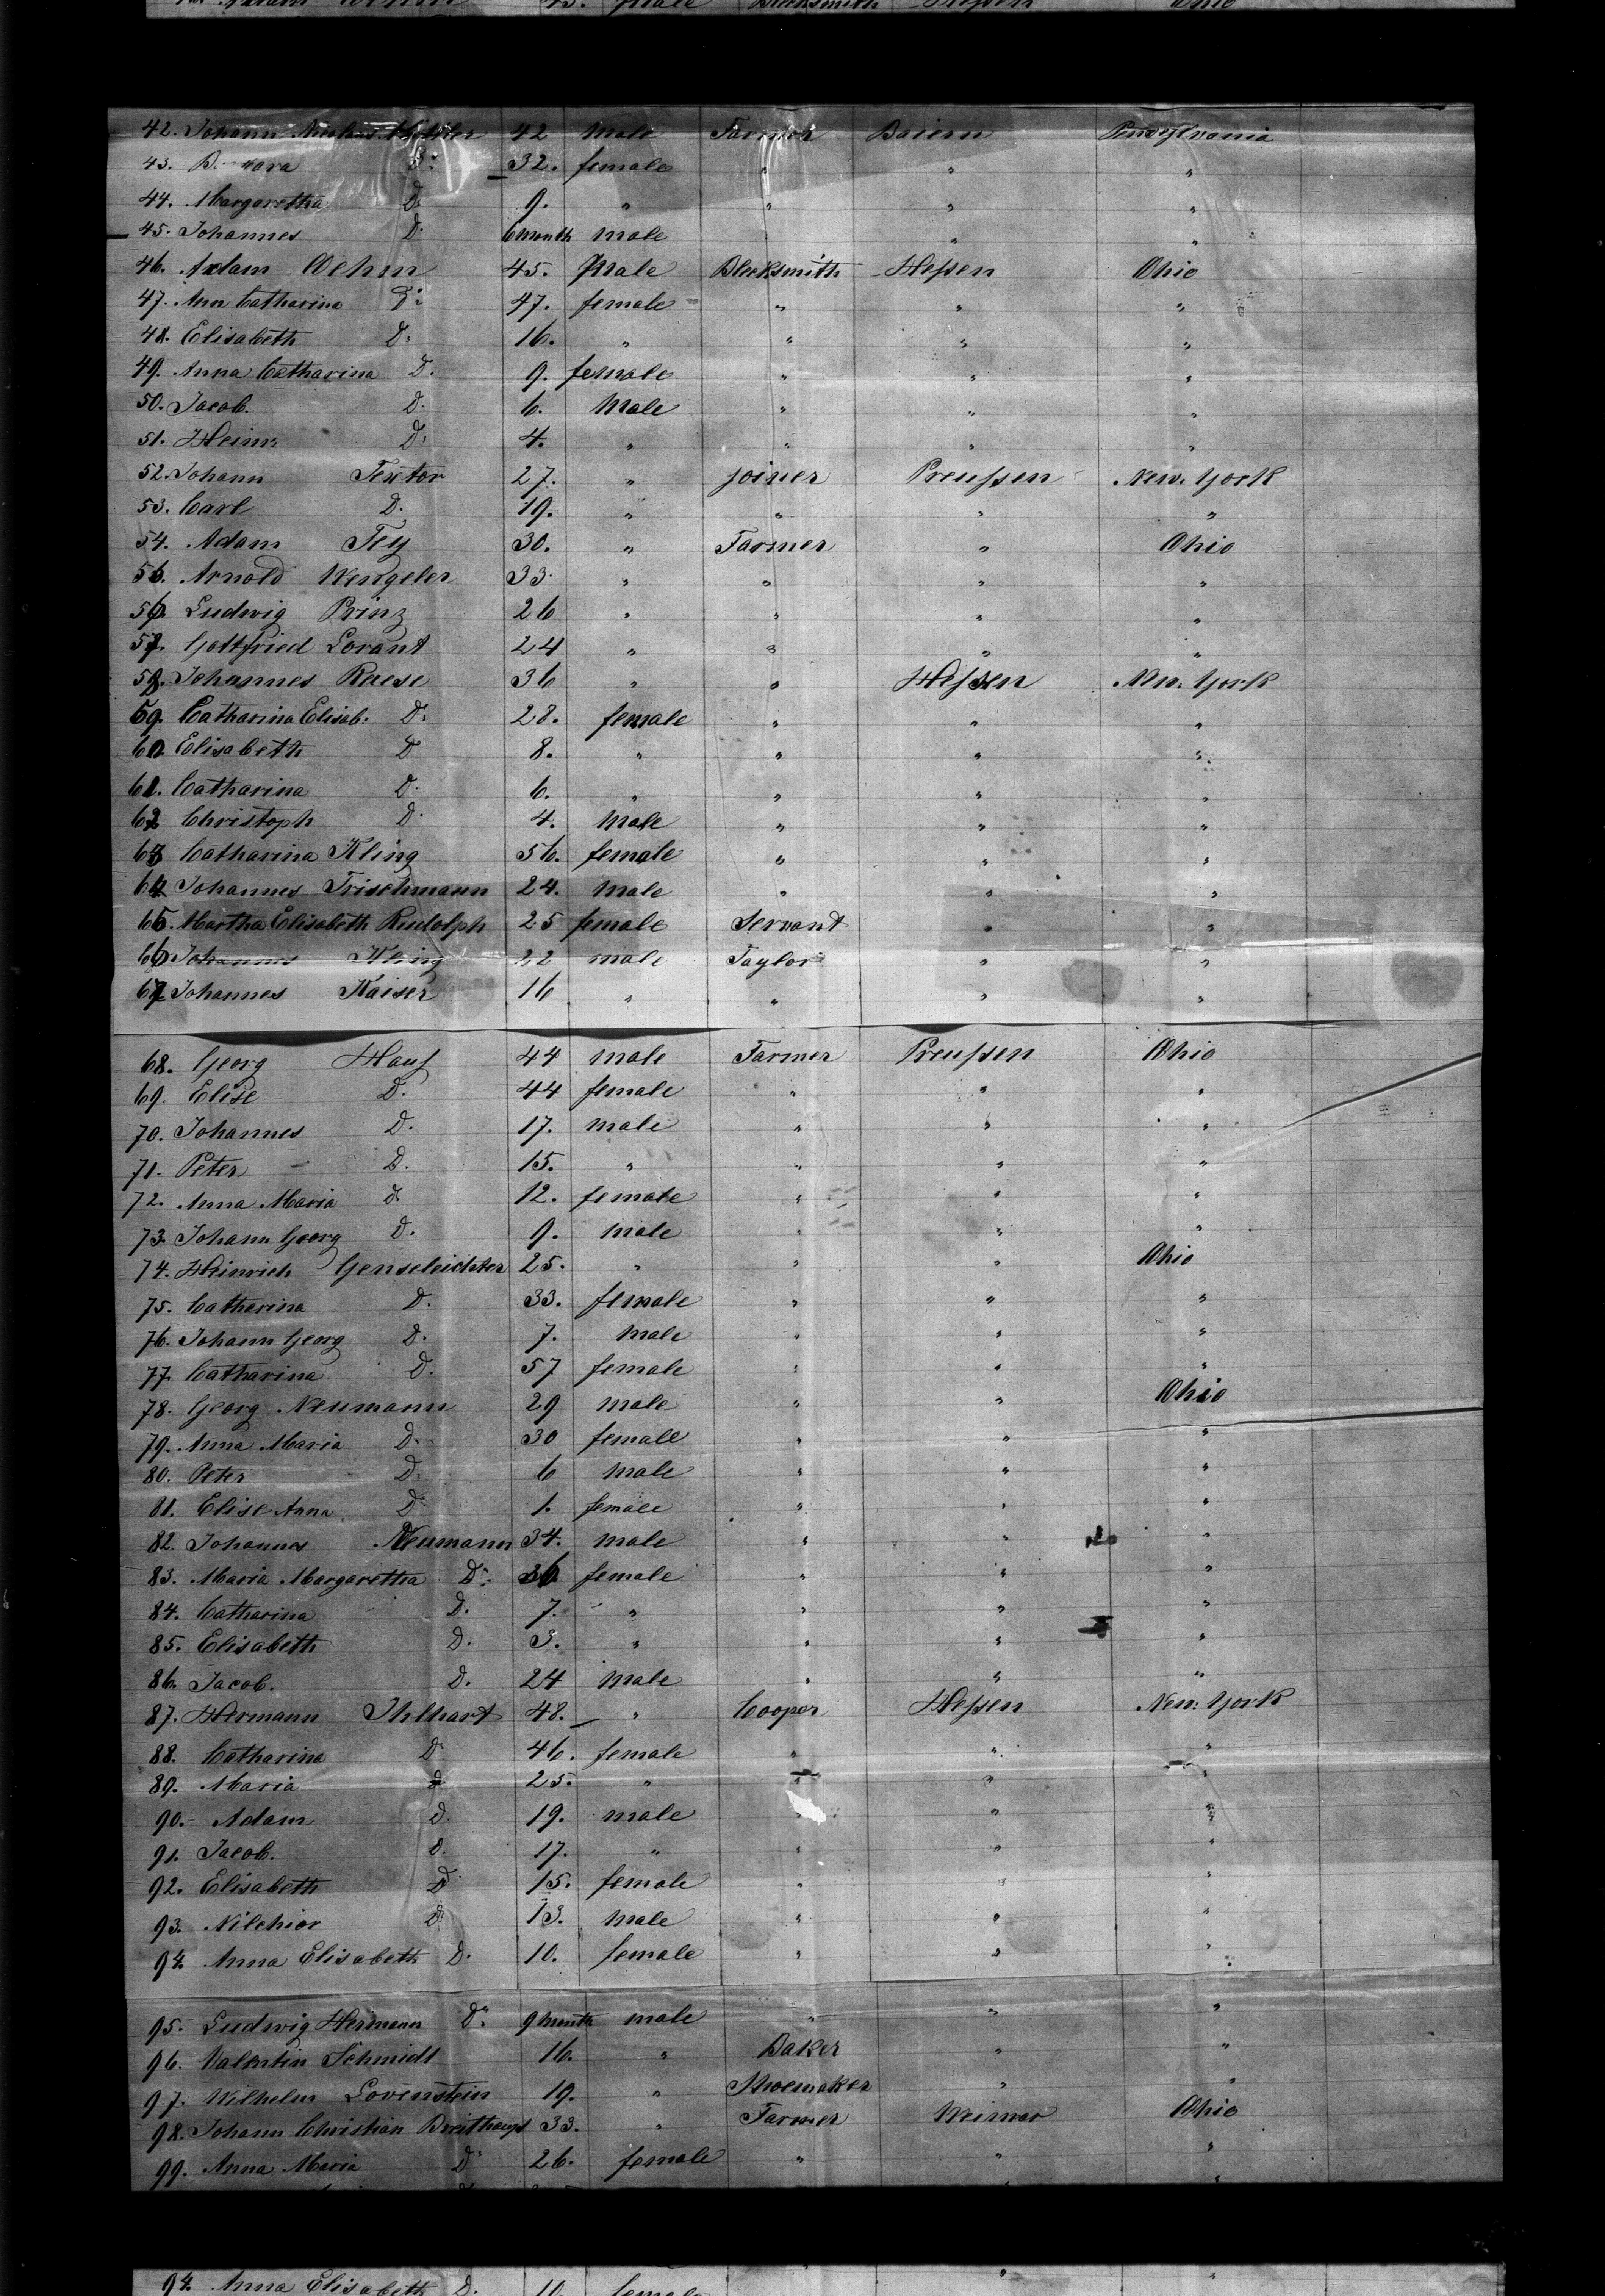 46. Adam Oehm 45. Male Blecksmith Hessen Ohio
42. Johann Nicolaus 42 Male Farmer Baiern Pensylvania
43. 32. female " " "
44. Margaretha D. 9. " " " "
45. Johannes D. 6 month male " "
46. Adam Oehm 45. Male Blecksmith Heſsen Ohio
47. Ann Catharina D: 47. female " " "
48. Elisabeth D. 16. " " " "
49. Anna Catharina D. 9. female " " "
50. Jacob. D. 6. Male " " "
51. Heinr: D: 4. " " " "
52. Johann Textor 27. " joiner Preuſsen New. York
53. Carl D. 19. " " " "
54. Adam Fey 30. " Farmer " Ohio
55. Arnold Wengeler 33. " " " "
56. Ludwig Prinz 26 " " " "
57. Gottfried Lorant 24 " " " "
58. Johannes Raese 36 " " Heſsen New. York
59. Catharina Elisab: D: 28. female " " "
60. Elisabeth D 8. " " " "
61. Catharina D. 6. " " " "
62 Christoph D. 4. Male " " "
63 Catharina Kling 56. female " " "
64 Johannes Frischmann 24. Male " " "
65. Martha Elisabeth Rudolph 25 female Servant " "
66 Johannes Kling 22 male Taylor " "
67 Johannes Kaiser 16 " " " "
68. Georg Hauf 44 male Farmer Preuſsen Ohio
69. Elise D. 44 female " " "
70. Johannes D. 17. male " " "
71. Peter D. 15. " " " "
72. Anna Maria D. 12. female " " "
73. Johann Georg D. 9. male " " "
74. Heinrich Genseleichter 25. " " " Ohio
75. Catharina D. 33. female " " "
76. Johann Georg D. 7. male " " "
77. Catharina D. 57 female " " "
78. Georg Neumann 29 male " " Ohio
79. Anna Maria D. 30 female " " "
80. Peter D. 6 male " " "
81. Elise Anna D 1. female " " "
82. Johannes Neumann 34. male " " "
83. Maria Margaretha D: 36 female " " "
84. Catharina D. 7. " " " "
85. Elisabeth D. 3. " " " "
86. Jacob. D. 24 male " " "
87. Hermann Ihlhart 48. " Cooper Heſsen New. York
88. Catharina D 46. female " " "
89. Maria D. 25. " " " "
90. Adam D. 19. male " " "
91. Jacob. D. 17. " " " "
92. Elisabeth D 15. female " " "
93. Nilchior D 13. male " " "
94. Anna Elisabeth D. 10. female " " "
95. Ludwig Hermann D: 9 month male " " "
96. Valentin Schmidt 16. " Baker " "
97. Wilhelm Lovenstein 19. " Shoemaker " "
98. Johann Christian Breithaupt 33. " Farmer Weimar Ohio
99. Anna Maria D: 26. female " " "
94. Anna Elisabeth D. 10. female